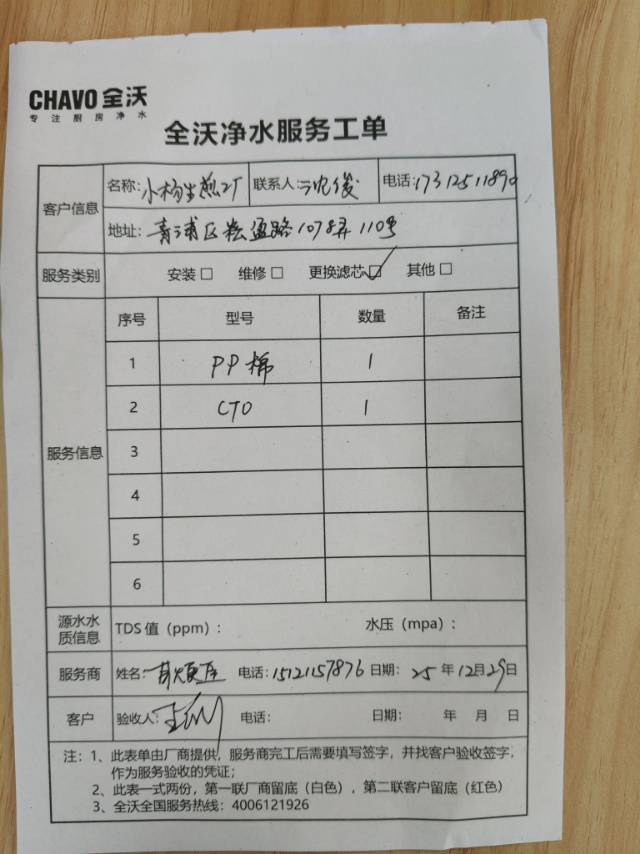 CHAVO 全沃
专注厨房净水
全沃净水服务工单
客户信息
名称：小杨生煎工厂 联系人：沈俊 电话：17312511890
地址：青浦区崧盈路1078弄110号
服务类别 安装□ 维修□ 更换滤芯☑ 其他□
服务信息
序号 型号 数量 备注
1 PP棉 1
2 CTO 1
3
4
5
6
源水水质信息 TDS 值（ppm）： 水压（mpa）：
服务商 姓名： 电话：15121157876 日期：25 年 12月 29日
客户 验收人： 电话： 日期： 年 月 日
注：1、此表单由厂商提供，服务商完工后需要填写签字，并找客户验收签字，
作为服务验收的凭证；
2、此表一式两份，第一联厂商留底（白色），第二联客户留底（红色）
3、全沃全国服务热线：4006121926